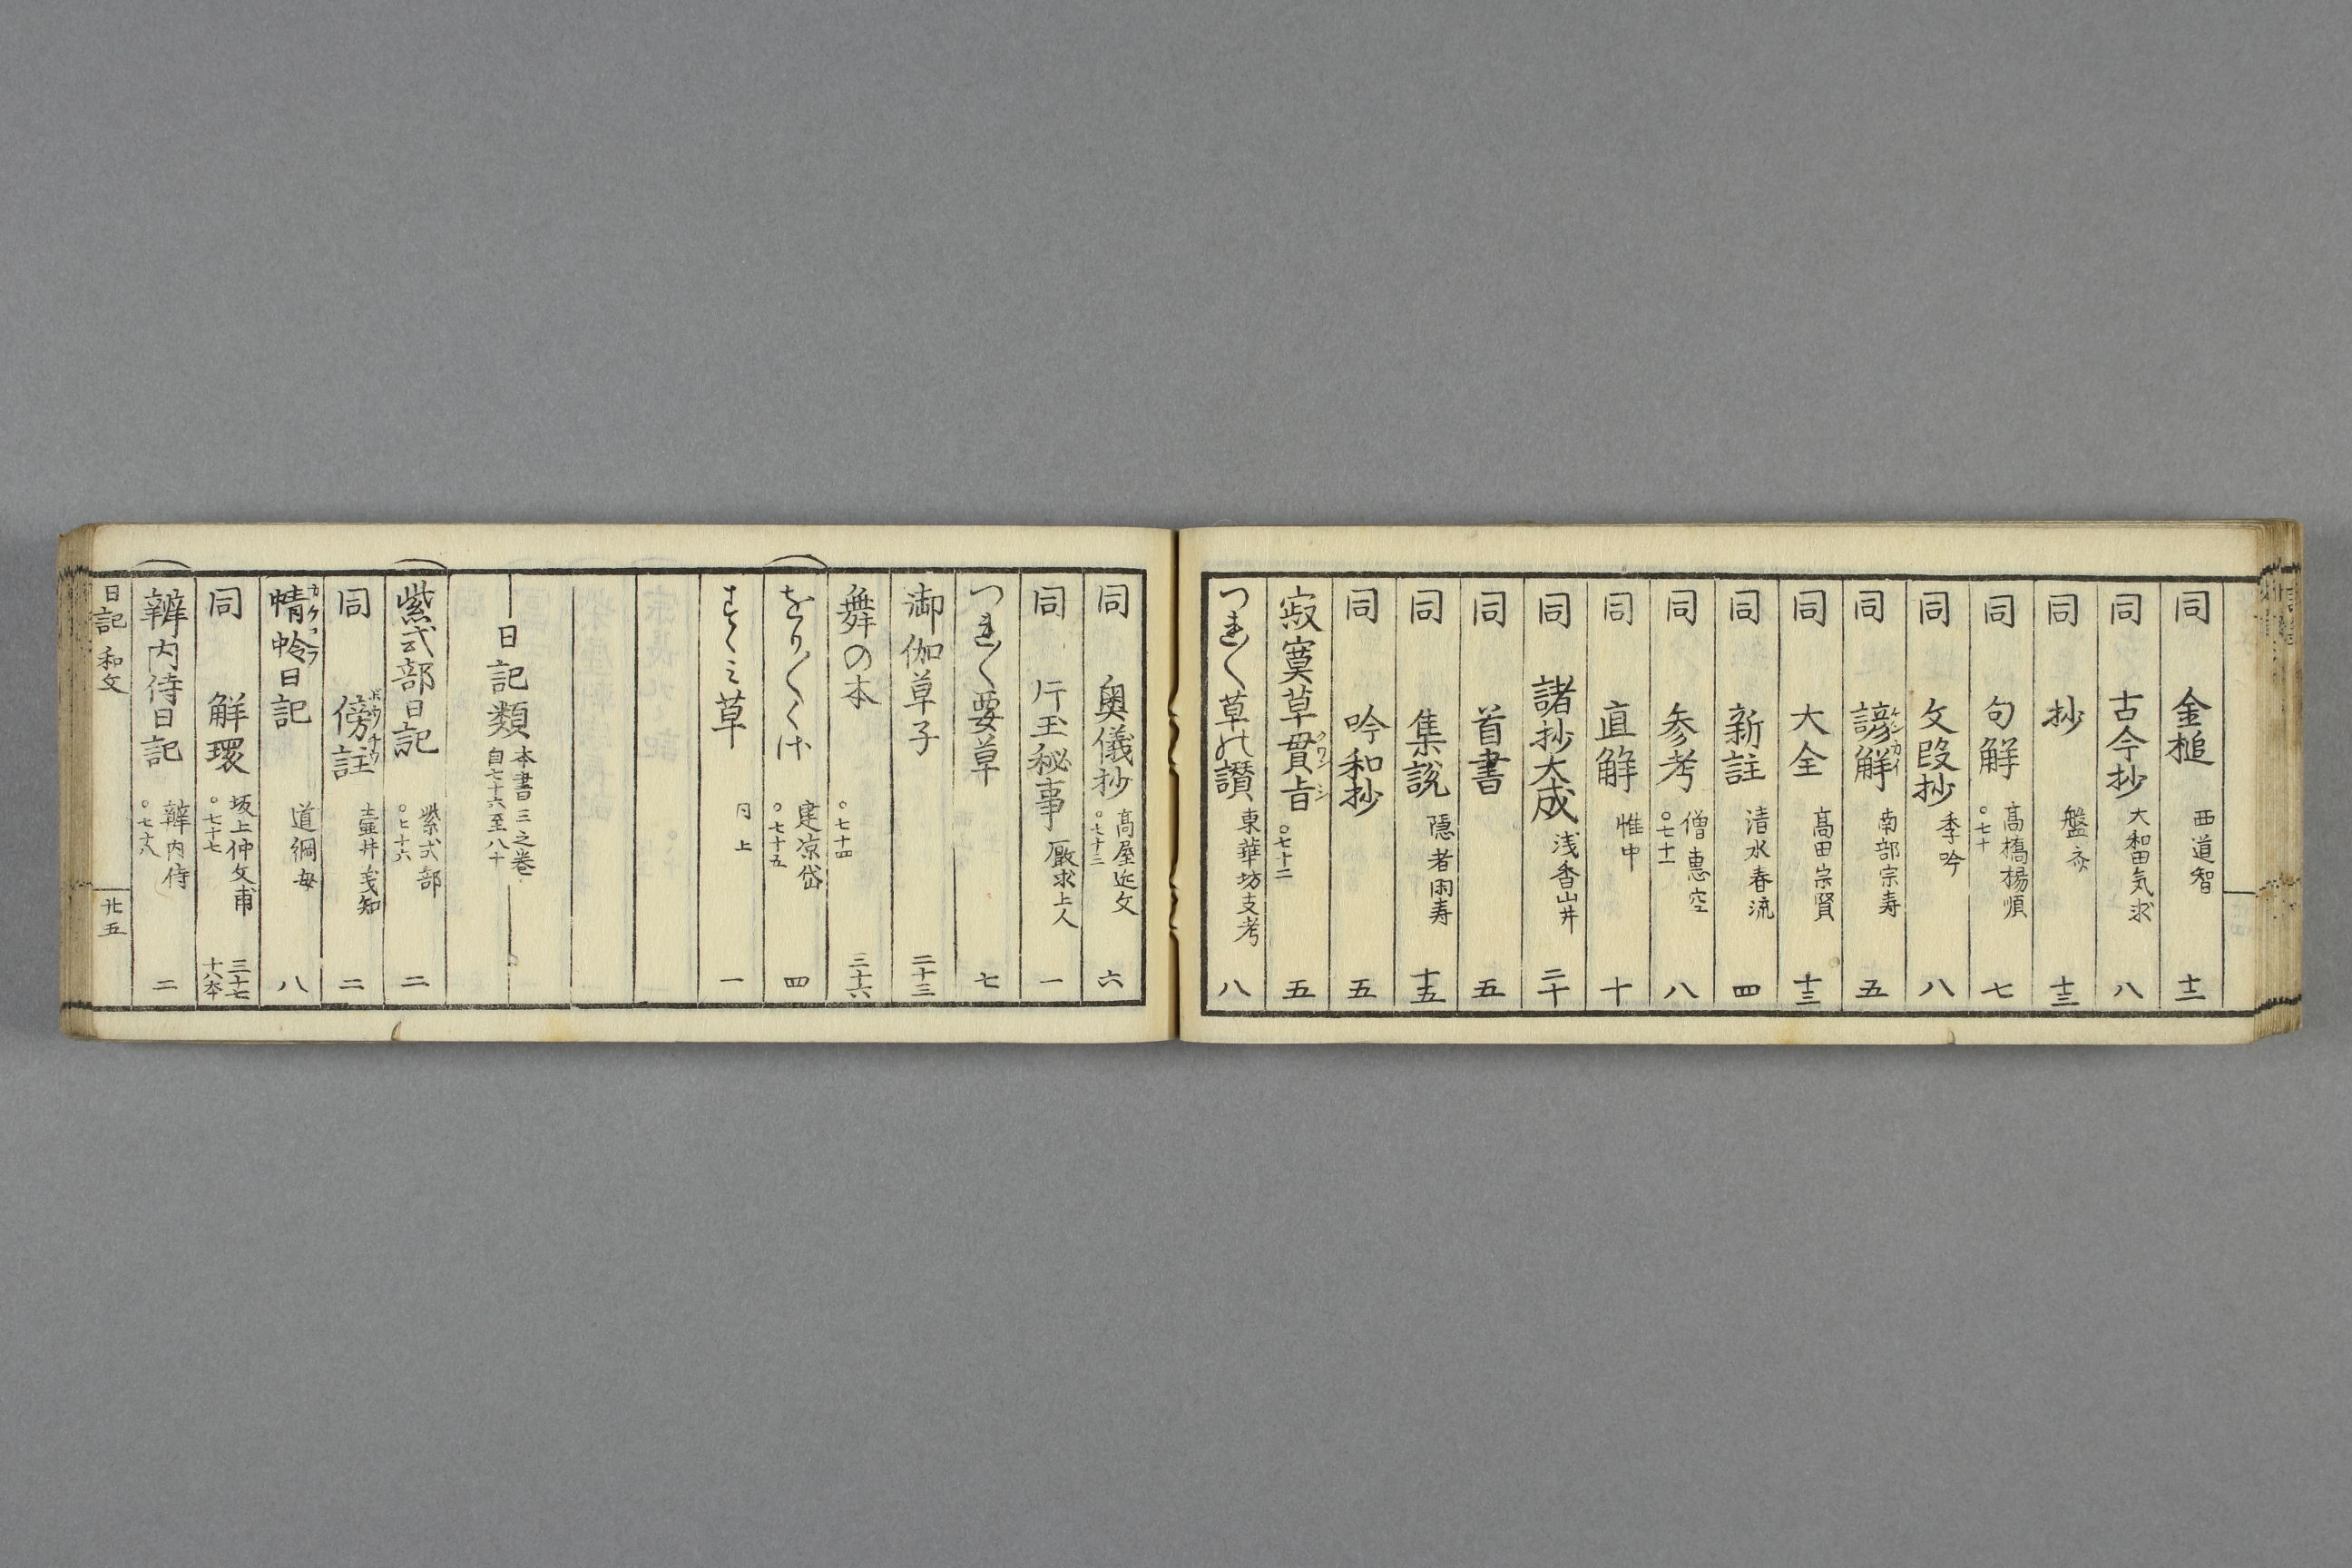 同 金槌 西道智 十二
同 古今抄 大和田気求 八
同 抄 盤斎 十三
同 句解 高橋楊順 ○七十 七
同 文段抄 季吟 八
同 諺解 ゲンカイ 南部宗寿 五
同 大全 高田宗賢 十三
同 新註 清水春流 四
同 参考 僧恵空 ○七十一 八
同 直解 惟中 十
同 諸抄大成 浅香山井 二十
同 首書 五
同 集説 隠者閑寿 十五
同 吟和抄 五
寂寞草貫旨 クワンシ ○七十二 五
つれ〳〵草の讃 東華坊支考 八
同 奥儀抄 高屋近文 ○七十三 六
同 片玉秘事 厭求上人 一
つれ〳〵要草 七
御伽草子 二十三
舞の本 ○七十四 三十六
をり〳〵くさ 建凉岱 ○七十五 四
すゝミ草 同上 一
日記類 本書三之巻 自七十六至八十
紫式部日記 紫式部 ○七十六 二
同 傍註 ボウチウ 壷井義知 二
蜻蛉日記 カケロフ 道綱母 八
同 解環 坂上仲文甫 ○七十七 三十七 十八本
辨内侍日記 辨内侍 ○七十八 二
日記 和文 廿五